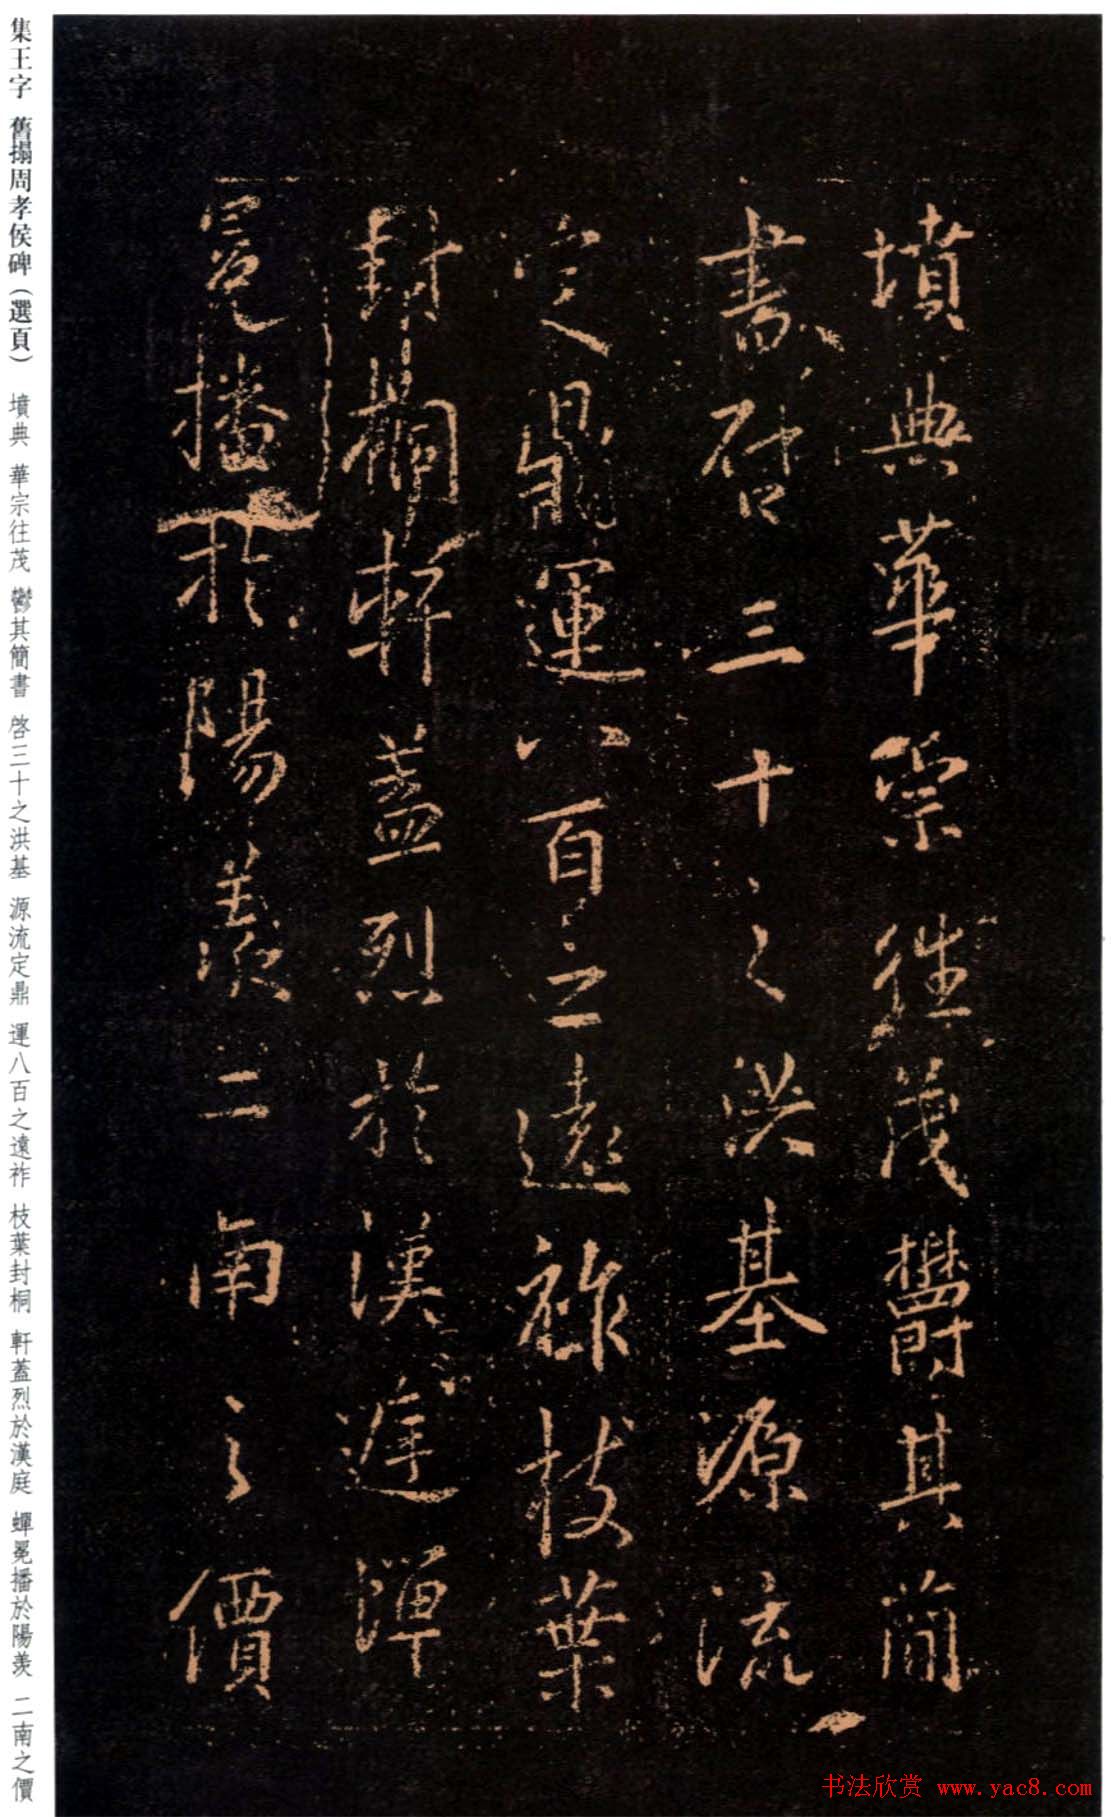 墳典華宗往茂鬱其簡
書啓三十之洪基源流
定鼎運八百之遠祚枝葉
封桐軒蓋烈於漢庭蟬
冕播於陽羨二南之價
集王字 舊搨周孝侯碑（選頁） 墳典 華宗往茂 鬱其簡書 啓三十之洪基 源流定鼎 運八百之遠祚 枝葉封桐 軒蓋烈於漢庭 蟬冕播於陽羨 二南之價
书法欣赏 www.yac8.com